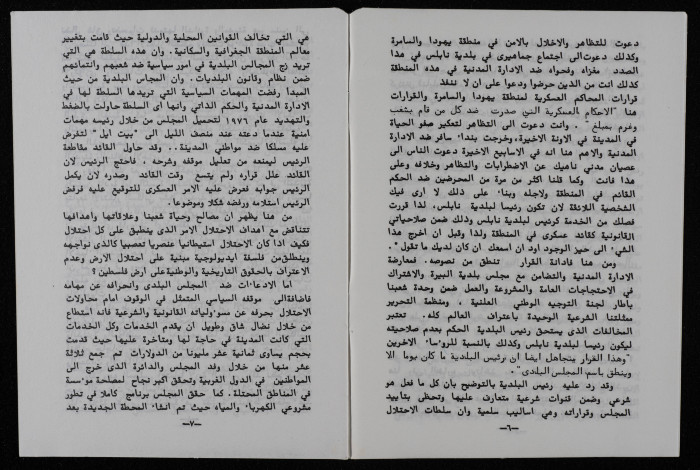 دعوت للتظاهر والاخلال بالامن في منطقة يهودا والسامرة
وكذلك دعوت الى اجتماع جماهيرى في بلدية نابلس في هذا
الصدد مغزاه وفحواه ضد الادارة المدنية في هذه المنطقة
كذلك انت من الذين حرضوا ودعوا على ان لا تنفذ
قرارات المحاكم العسكرية لمنطقة يهودا والسامرة والقرارات
هنا "الاحكام العسكرية التي صدرت ضد كل من قام بشغب
وغرم بمبلغ" . وانت دعوت الى التظاهر لتعكير صفو الحياة
في المدينة في الاونة الاخيرة، وخرجت بنداء سافر ضد الادارة
المدنية والاهم هنا انه في الاسابيع الاخيرة دعوت الناس الى
عصيان مدني ناهيك عن الاضطرابات والتظاهر وخلافه وعلى
هذا فانت وكما قلنا أكثر من مرة من المحرضين ضد الحكم
القائم في المنطقة ولاجله وبناء على ذلك لا ارى فيك
الشخصية اللائقة لان تكون رئيسا لبلدية نابلس، لذا قررت
فصلك من الخدمة كرئيس لبلدية نابلس وذلك ضمن صلاحياتي
القانونية كقائد عسكرى في المنطقة ولذا وقبل ان اخرج هذا
الشيء الى حيز الوجود اود ان اسمعك ان كان لديك ما تقول".
ومن هنا فادانة القرار تنطق من نصوصه. فمعارضة
الادارة المدنية والتضامن مع مجلس بلدية البيرة والاشتراك
في الاحتجاجات العامة والمشروعة والعمل ضمن وحدة شعبنا
باطار لجنة التوجيه الوطني العلنية ، ومنظمة التحرير
ممثلتنا الشرعية الوحيدة باعتراف العالم كله. تعتبر
المخالفات الذى يستحق رئيس البلدية الحكم بعدم صلاحيته
ليكون رئيسا لبلدية نابلس وكذلك بالنسبة للروءساء الاخرين
"وهذا القرار يتجاهل ايضا ان رئيس البلدية ما كان يوما الا
وينطق باسم المجلس البلدى".
وقد رد عليه رئيس البلدية بالتوضيح بان كل ما فعل هو
شرعي وضمن قنوات شرعية متعارف عليها وتحظى بتاييد
المجلس وقراراته وهي اساليب سلمية وان سلطات الاحتلال
—٦—
هي التي تخالف القوانين المحلية والدولية حيث قامت بتغيير
معالم المنطقة الجغرافية والسكانية. وان هذه السلطة هي التي
تريد زج المجالس البلدية في امور سياسية ضد شعبهم وانتمائهم
ضمن نظام وقانون البلديات. وان المجالس البلدية من حيث
المبدا رفضت المهمات السياسية التي تريدها السلطة لها في
الادارة المدنية والحكم الذاتي وانها أى السلطة حاولت بالضغط
والتهديد عام ١٩٧٦ لتحميل المجلس من خلال رئيسه مهمات
امنية عندما دعته عند منصف الليل الى "بيت ايل" لتفرض
عليه مسلكا ضد مواطني المدينة.. وقد حاول القائد مقاطعة
الرئيس ليمنعه من تعليل موقفه وشرحه ، فاحتج الرئيس لان
القائد علل قراره ولم يتسع وقت القائد وصدره لان يكمل
الرئيس جوابه فعرض عليه الامر العسكرى للتوقيع عليه فرفض
الرئيس استلامه ورفضه شكلا وموضوعا.
من هنا يظهر ان مصالح وحياة شعبنا وعلاقاتها واهدافها
تتناقض مع اهداف الاحتلال الامر الذى ينطبق على كل احتلال
فكيف اذا كان الاحتلال استيطانيا عنصريا تعصبيا كالذى نواجهه
وينطلق من فلسفة ايدولوجية مبنية على احتلال الارض وعدم
الاعتراف بالحقوق التاريخية والوطنية على ارض فلسطين؟
اما الادعاءات ضد المجلس البلدى وانحرافه عن مهامه
فاضافة الى موقفه السياسي المتمثل في الوقوف امام محاولات
الاحتلال بحرفه عن مسوءولياته القانونية والشرعية فانه استطاع
من خلال نضال شاق وطويل ان يقدم الخدمات وكل الخدمات
التي كانت المدينة في حاجة لها ومتاخرة عليها حيث قدمت
بحجم يساوى ثمانية عشر مليونا من الدولارات تم جمع ثلاثة
عشر منها من خلال وفد المجلس والدائرة الذى خرج الى
المواطنين في الدول الغربية وتحقق اكبر نجاح لمصلحة موءسسة
في المناطق المحتلة. كما حقق المجلس برنامج كاملا في تطور
مشروعي الكهرباء والمياه حيث تم انشاء المحطة الجديدة بعد
—٧—